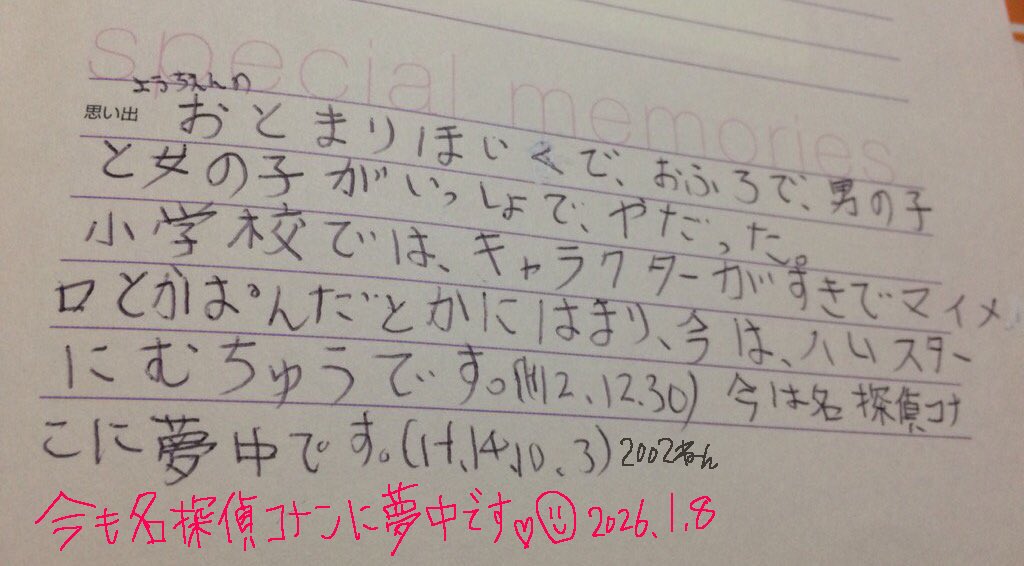 special memories
ようちえんの
思い出 おとまりほいくで、おふろで、男の子
と女の子がいっしょで、やだった。
小学校では、キャラクターがすきでマイメ
ロとかぱんだとかにはまり、今は、ハムスター
にむちゅうです。(H12.12.30) 今は名探偵コナ
こに夢中です。(H.14.10.3) 2002ねん
今も名探偵コナンに夢中です♡☺2026.1.8